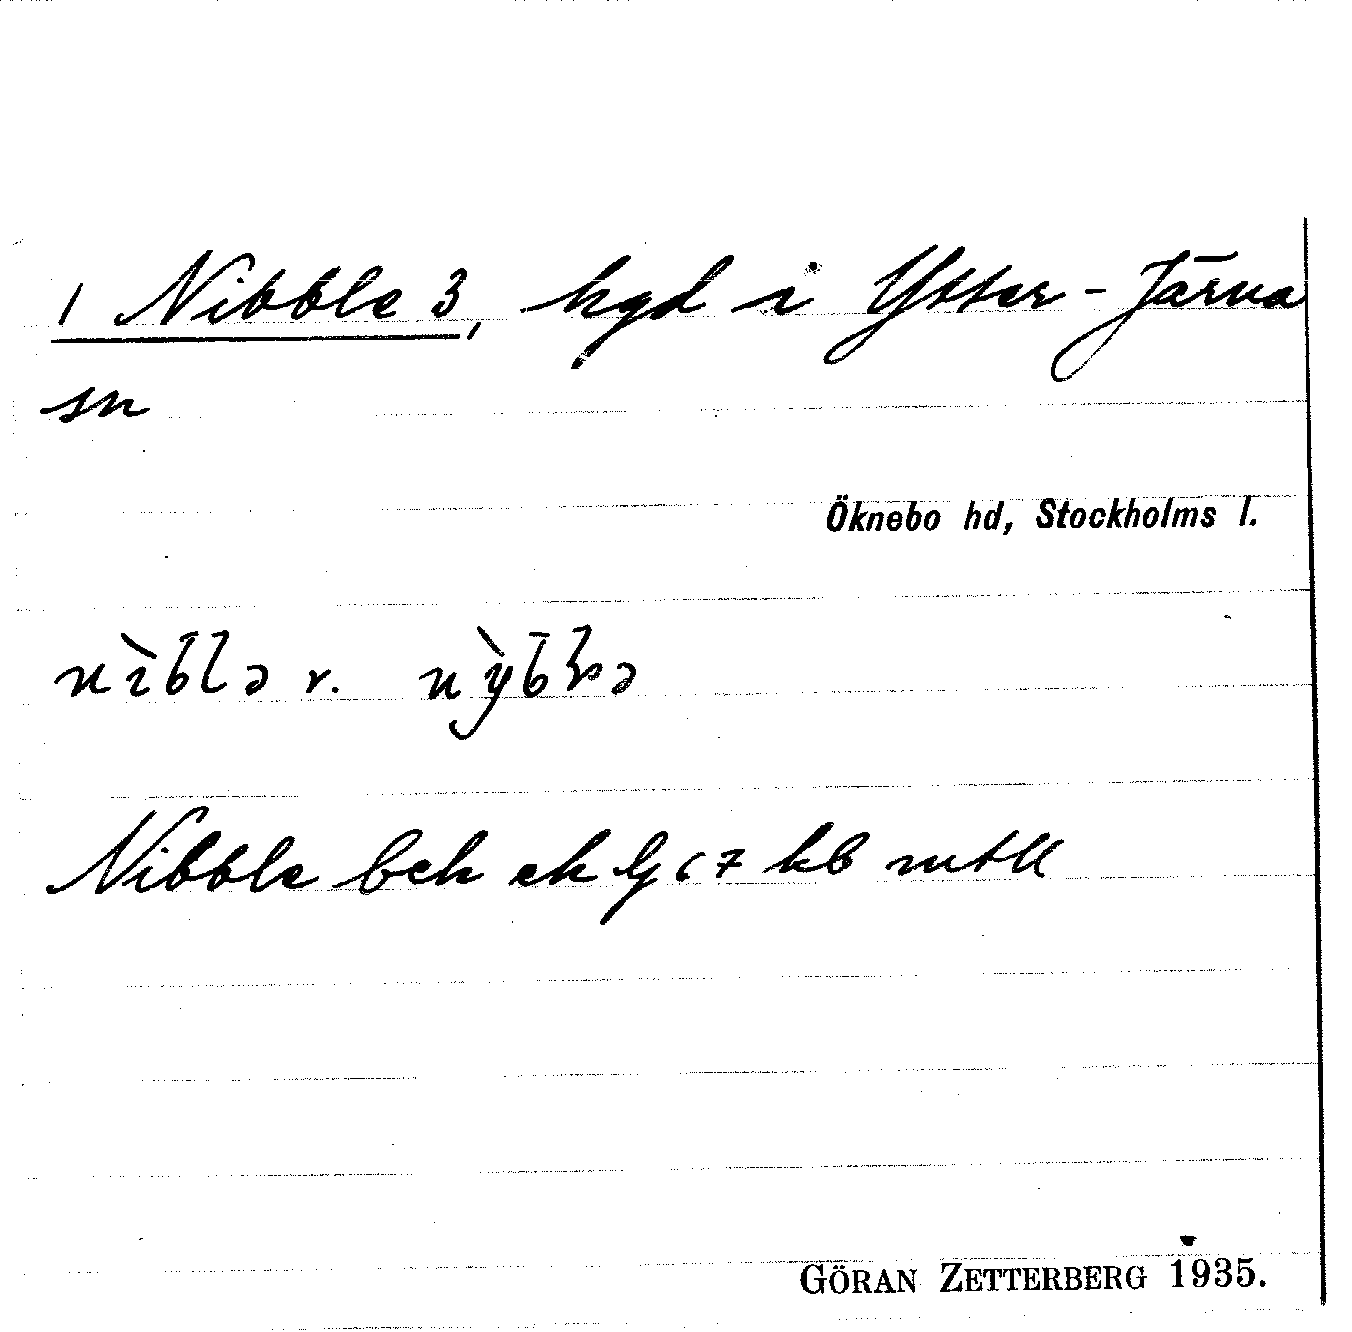 1 Nibble 3, hgd i Ytter-Järna
sn
Öknebo hd, Stockholms l.
nìblə r.
Nibble bek ek kb mtll
GÖRAN ZETTERBERG 1935.